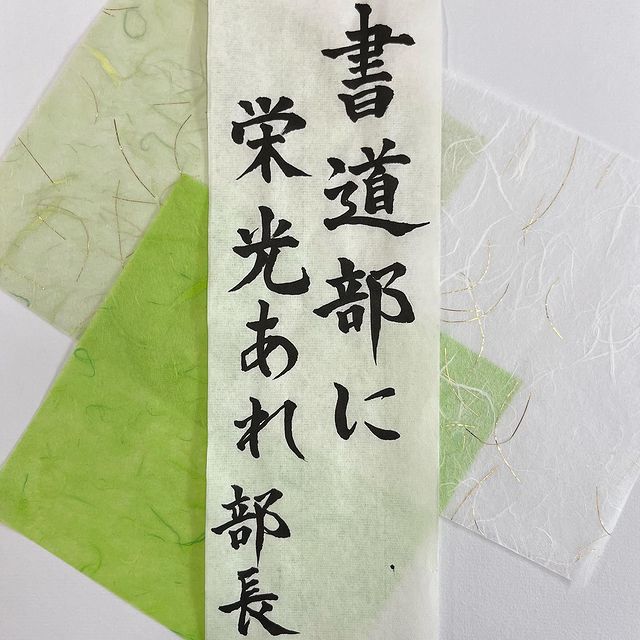 書道部に
栄光あれ
部長